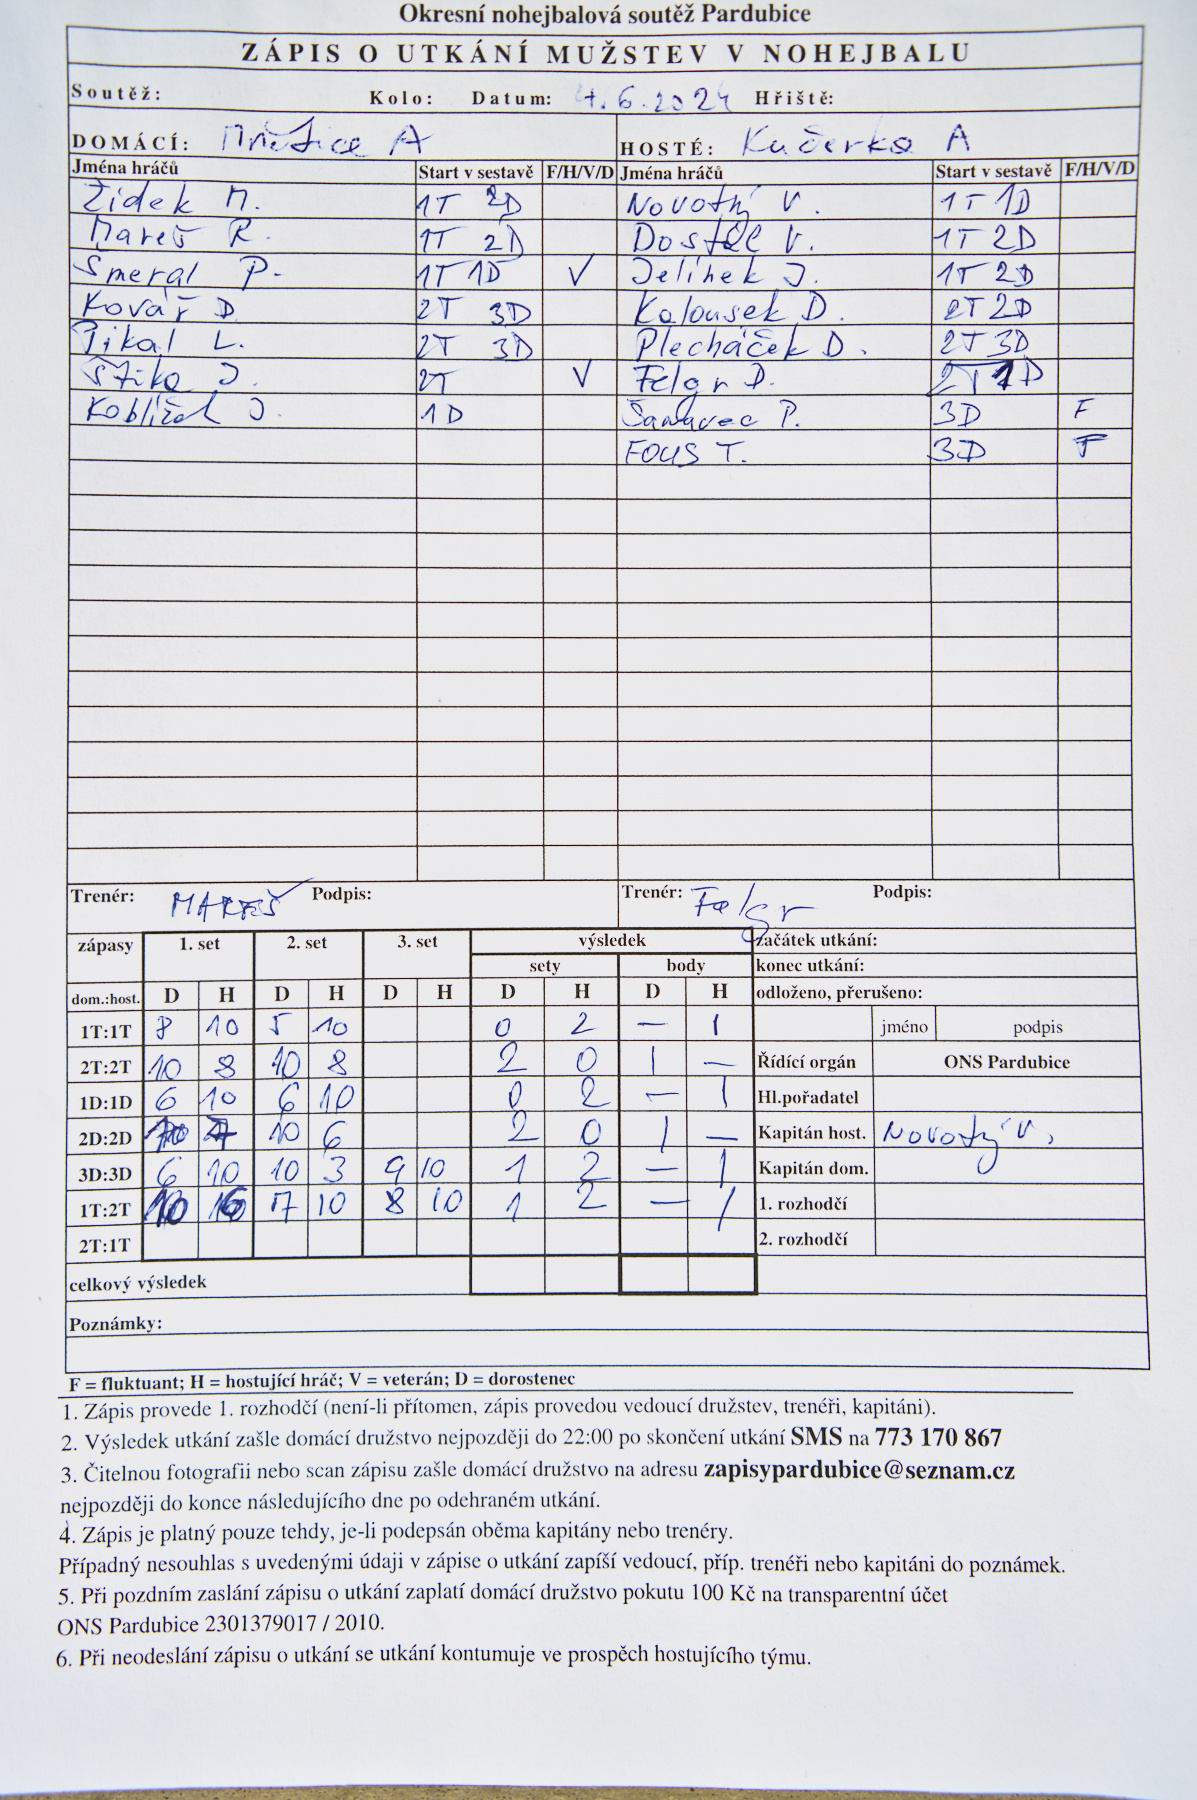 Okresní nohejbalová soutěž Pardubice
ZÁPIS O UTKÁNÍ MUŽSTEV V NOHEJBALU
Soutěž: Kolo: Datum: 4.6.2024 Hřiště:
DOMÁCÍ: Mnětice A HOSTÉ: Kučerko A
Jména hráčů Start v sestavě F/H/V/D Jména hráčů Start v sestavě F/H/V/D
Židek M. 1T 2D Novotný V. 1T 1D
Mareš R. 1T 2D Dostál V. 1T 2D
Smeral P. 1T 1D V Jelínek J. 1T 2D
Kovář D. 2T 3D Kalousek D. 2T 2D
Pikal L. 2T 3D Plecháček D. 2T 3D
Štika J. 2T V Felgr D. 2T 1D
J. 1D P. 3D F
FOUS T. 3D F
Trenér: MAREŠ Podpis: Trenér: Felgr Podpis:
zápasy 1. set 2. set 3. set výsledek začátek utkání:
sety body konec utkání:
dom.:host. D H D H D H D H D H odloženo, přerušeno:
1T:1T 8 10 5 10 0 2 – 1 jméno podpis
2T:2T 10 8 10 8 2 0 1 – Řídící orgán ONS Pardubice
1D:1D 6 10 6 10 0 2 – 1 Hl.pořadatel
2D:2D 10 7 10 6 2 0 1 – Kapitán host. Novotný V.
3D:3D 6 10 10 3 9 10 1 2 – 1 Kapitán dom.
1T:2T 10 6 7 10 8 10 1 2 – 1 1. rozhodčí
2T:1T 2. rozhodčí
celkový výsledek
Poznámky:
F = fluktuant; H = hostující hráč; V = veterán; D = dorostenec
1. Zápis provede 1. rozhodčí (není-li přítomen, zápis provedou vedoucí družstev, trenéři, kapitáni).
2. Výsledek utkání zašle domácí družstvo nejpozději do 22:00 po skončení utkání SMS na 773 170 867
3. Čitelnou fotografii nebo scan zápisu zašle domácí družstvo na adresu zapisypardubice@seznam.cz
nejpozději do konce následujícího dne po odehraném utkání.
4. Zápis je platný pouze tehdy, je-li podepsán oběma kapitány nebo trenéry.
Případný nesouhlas s uvedenými údaji v zápise o utkání zapíší vedoucí, příp. trenéři nebo kapitáni do poznámek.
5. Při pozdním zaslání zápisu o utkání zaplatí domácí družstvo pokutu 100 Kč na transparentní účet
ONS Pardubice 2301379017 / 2010.
6. Při neodeslání zápisu o utkání se utkání kontumuje ve prospěch hostujícího týmu.